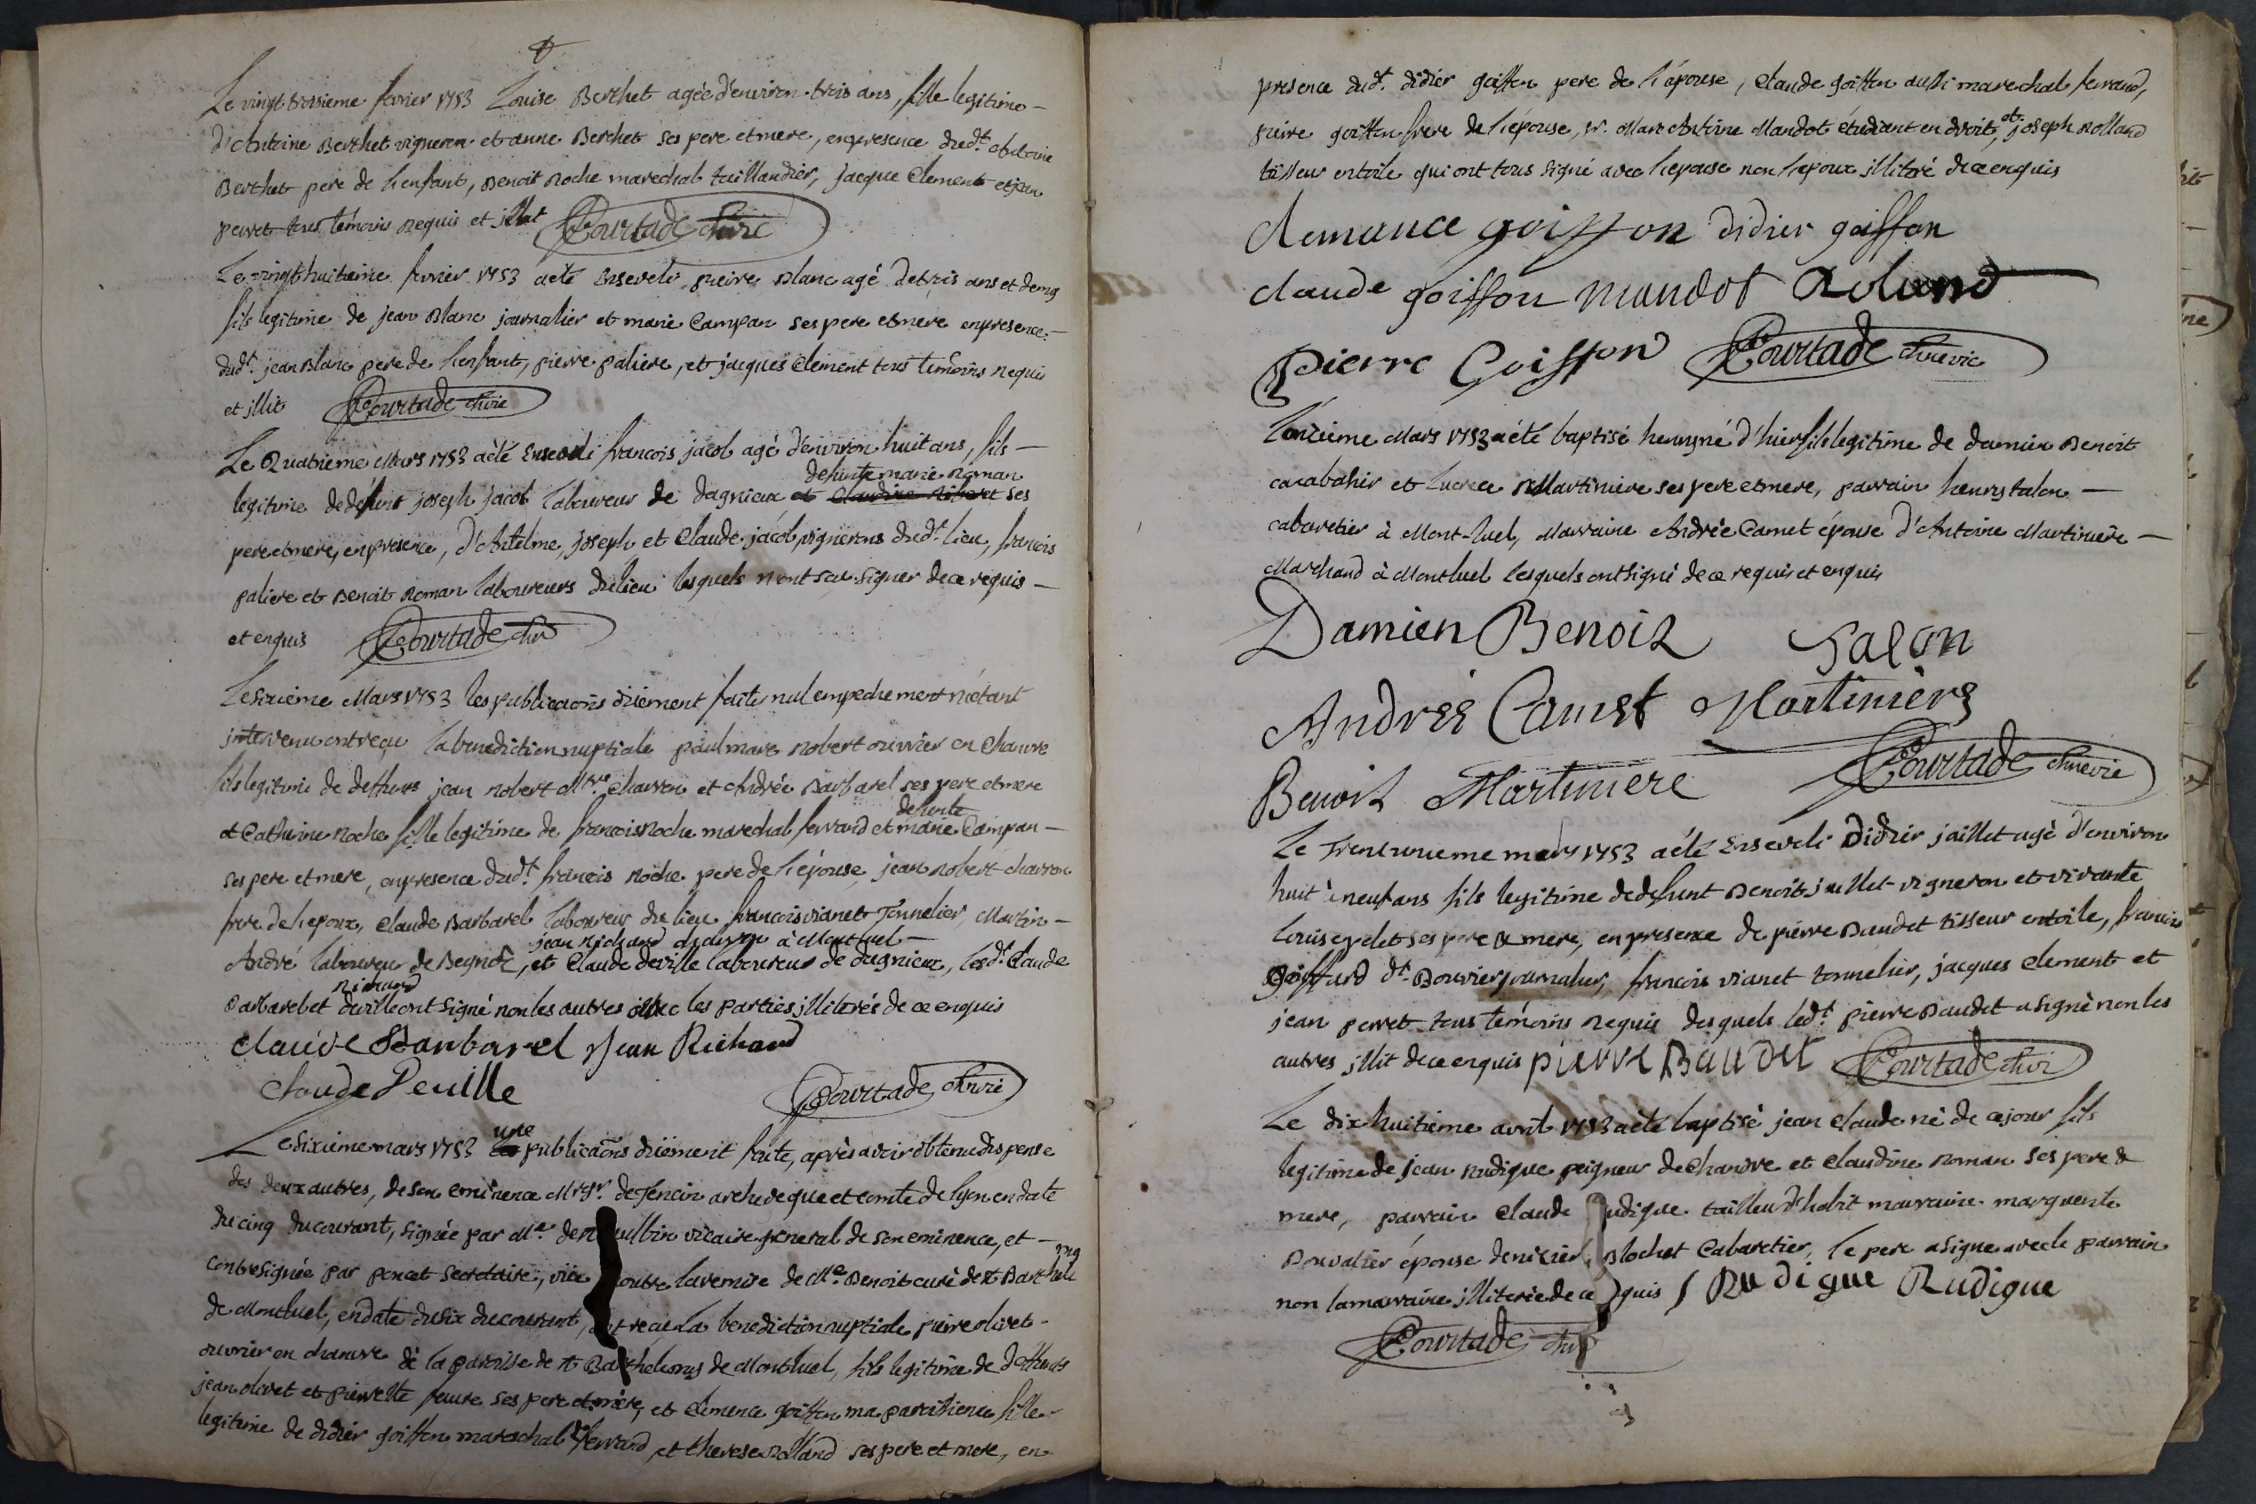 Le vingt troisieme fevrier 1753 Louise Berthet agée d'environ trois ans, fille legitime
d'Antoine Berthet vigneron et anne Berthet ses pere et mere, en presence dudt. Antoine
Berthet pere de l'enfant, Benoit Roche marechal taillandier, jacque Clement et jean
perret tous témoins requis et illit Courtade
Le vingt huitieme fevrier 1753 a eté Enseveli pierre Blanc agé de trois ans et demy
fils legitime de jean Blanc journalier et marie Campan ses pere et mere en presence
dudt. jean Blanc pere de l'enfant, pierre paliere, et jacques Clement tous témoins requis
et illit Courtade
Le Quatrieme Mars 1753 a été Enseveli francois jacob agé d'environ huit ans, fils
defunte marie Roman
legitime de défunt joseph jacob laboureur de dagnieux et Claudine ses
pere et mere, en presence, d'Antelme, joseph et Claude jacob, vignerons dudt. lieu, francois
paliere et Benoit Roman laboureurs du lieu lesquels n'ont scu signer de ce requis
et enquis Courtade
Le sixieme Mars 1753 les publicaons düement faites nul empechement n'étant
intervenu ont reçu la benediction nuptiale paul marc Robert ouvrier en Chanvre
fils legitime de deffunts jean Robert Mtre. Charron et Andrée Barbarel ses pere et mere
defunte
et Catherine Roche fille legitime de francois Roche marechal ferrand et marie Campan
ses pere et mere, en presence dudt. francois Roche pere de l'épouse, jean Robert charron
frere de l'epoux, Claude Barbarel laboureur du lieu francois vianet Tonnelier, Martin
jean Richard à Montluel
André laboureur de Begnot, et Claude deville laboureur de dagnieux, lesdt. Claude
Richard
Barbarel et deville ont signé non les autres avec les parties illiterés de ce enquis
claude Barbarel Jean Richard
Claude Deville Courtade
une
Le sixieme mars 1753 publicaons düement faite, après avoir obtenu dispense
des deux autres, de son eminence Mrgr. de Tencin archeveque et comte de lyon en date
du cinq du courant, signée par Mre. de vicaire general de son eminence, et
contresignée par poncet secretaire, outre la remise de Mre. Benoit curé de st Barthelemy
de Montluel, en date du six du courant, ont recu la benediction nuptiale pierre olivet
ouvrier en chanvre de la paroisse de st Barthelemy de Montluel, fils legitime de deffunts
jean olivet et pierrette faure ses pere et mère, et Clemence goiffon ma paroisienne fille
legitime de didier goiffon mareschal ferrand, et therese Rolland ses pere et mere, en
presence dudt. didier goiffon pere de l'épouse, Claude goiffon aussi marechal ferrand,
pierre goiffon frere de l'épouse, sr. Marc Antoine Mandot étudiant en droit, et joseph Rolland
tisseur en toile qui ont tous signé avec l'epouse non l'epoux illiteré de ce enquis
clemance goiffon didier goiffon
claude goiffon mandot Roland
Pierre Goiffon Courtade
L'onzieme Mars 1753 a été baptisé henry né d'hier fils legitime de damien Benoit
et lucrece Martiniere ses pere et mere, parrain henry talon
cabaretier à Mont-luel, Marraine Andrée Camet épouse d'Antoine Martiniere
Marchand à Montluel lesquels ont signé de ce requis et enquis
Damien Benoit Talon
Andreé Camet Martiniere
Benoit Martiniere Courtade
Le Trente unieme mars 1753 a été Enseveli Didier jaillet agé d'environ
huit à neuf ans fils legitime de defunt Benoit jaillet vigneron et vivante
Louise ses pere & mere, en presence de pierre Baudet tisseur en toile, francois
Goiffard dt. Bouvier journalier, francois vianet tonnelier, jacques Clement et
jean perret tous témoins requis desquels ledt. pierre Baudet a signé non les
autres illit de ce enquis pierre Baudet Courtade
Le dix huitieme avril 1753 a été baptisé jean Claude né de ce jour fils
legitime de jean Rudigue peigneur de Chanvre et Claudine Roman ses pere &
mere, parrain Claude Rudigue tailleur d'habit marraine marguerite
Bouvatier épouse de nizier Blochet Cabaretier, le pere a signe avec le parrain
non la marraine illiterée de ce enquis J Rudigue Rudigue
Courtade